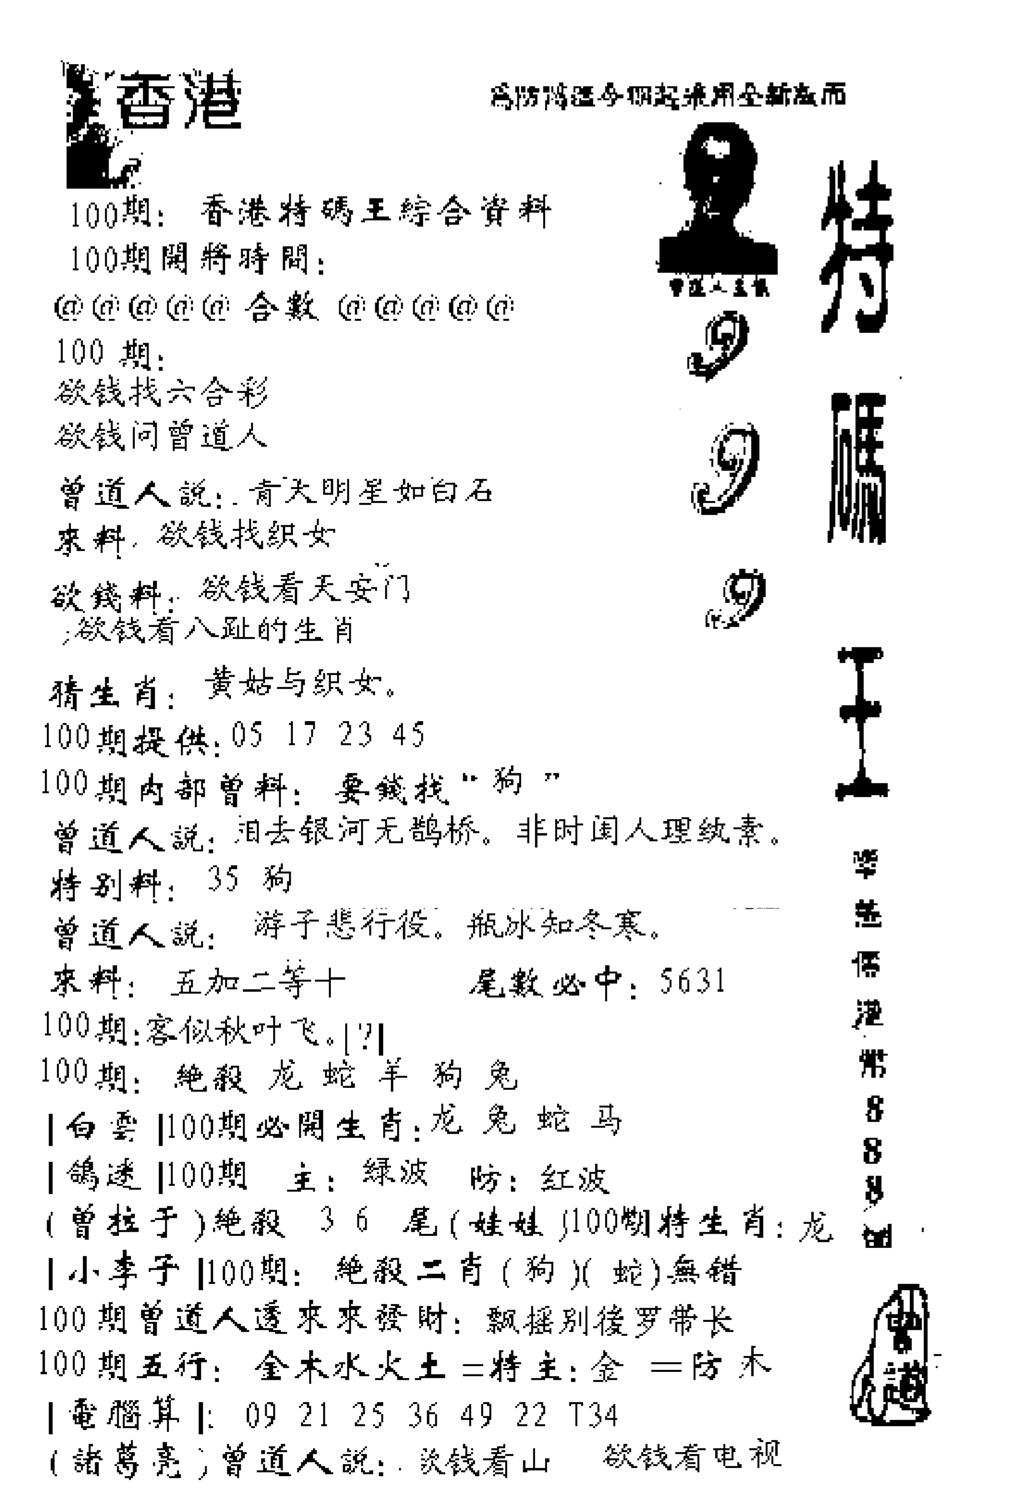 香港
特碼王
100期：香港特碼王綜合資料
100期開將時間：
@@@@@ 合數 @@@@@
100 期：
欲钱找六合彩
欲钱问曾道人
曾道人説：青天明星如白石
來料 欲钱找织女
欲錢料：欲钱看天安门
欲钱看八趾的生肖
猜生肖：黄姑与织女。
100期提供：05 17 23 45
100期内部曾料：要錢找“狗”
曾道人説：泪去银河无鹊桥。非时闺人理纨素。
特别料：35 狗
曾道人説：游子悲行役。瓶冰知冬寒。
來料：五加二等十 尾數必中：5631
100期:客似秋叶飞。|?|
100期：絶殺 龙 蛇 羊 狗 兔
|白雲|100期必開生肖：龙 兔 蛇 马
|鴿迷|100期 主：緑波 防：红波
(曾拉于)絶殺 3 6 尾(娃娃)100期特生肖：龙
|小李子|100期：絶殺二肖(狗)(蛇)無错
100期曾道人透來來發財：飘摇别後罗带长
100期五行：金木水火土=特主：金 =防 木
|電腦算|: 09 21 25 36 49 22 T34
(諸葛亮)曾道人説：欲钱看山 欲钱看电视
9
9
9
888
曾道